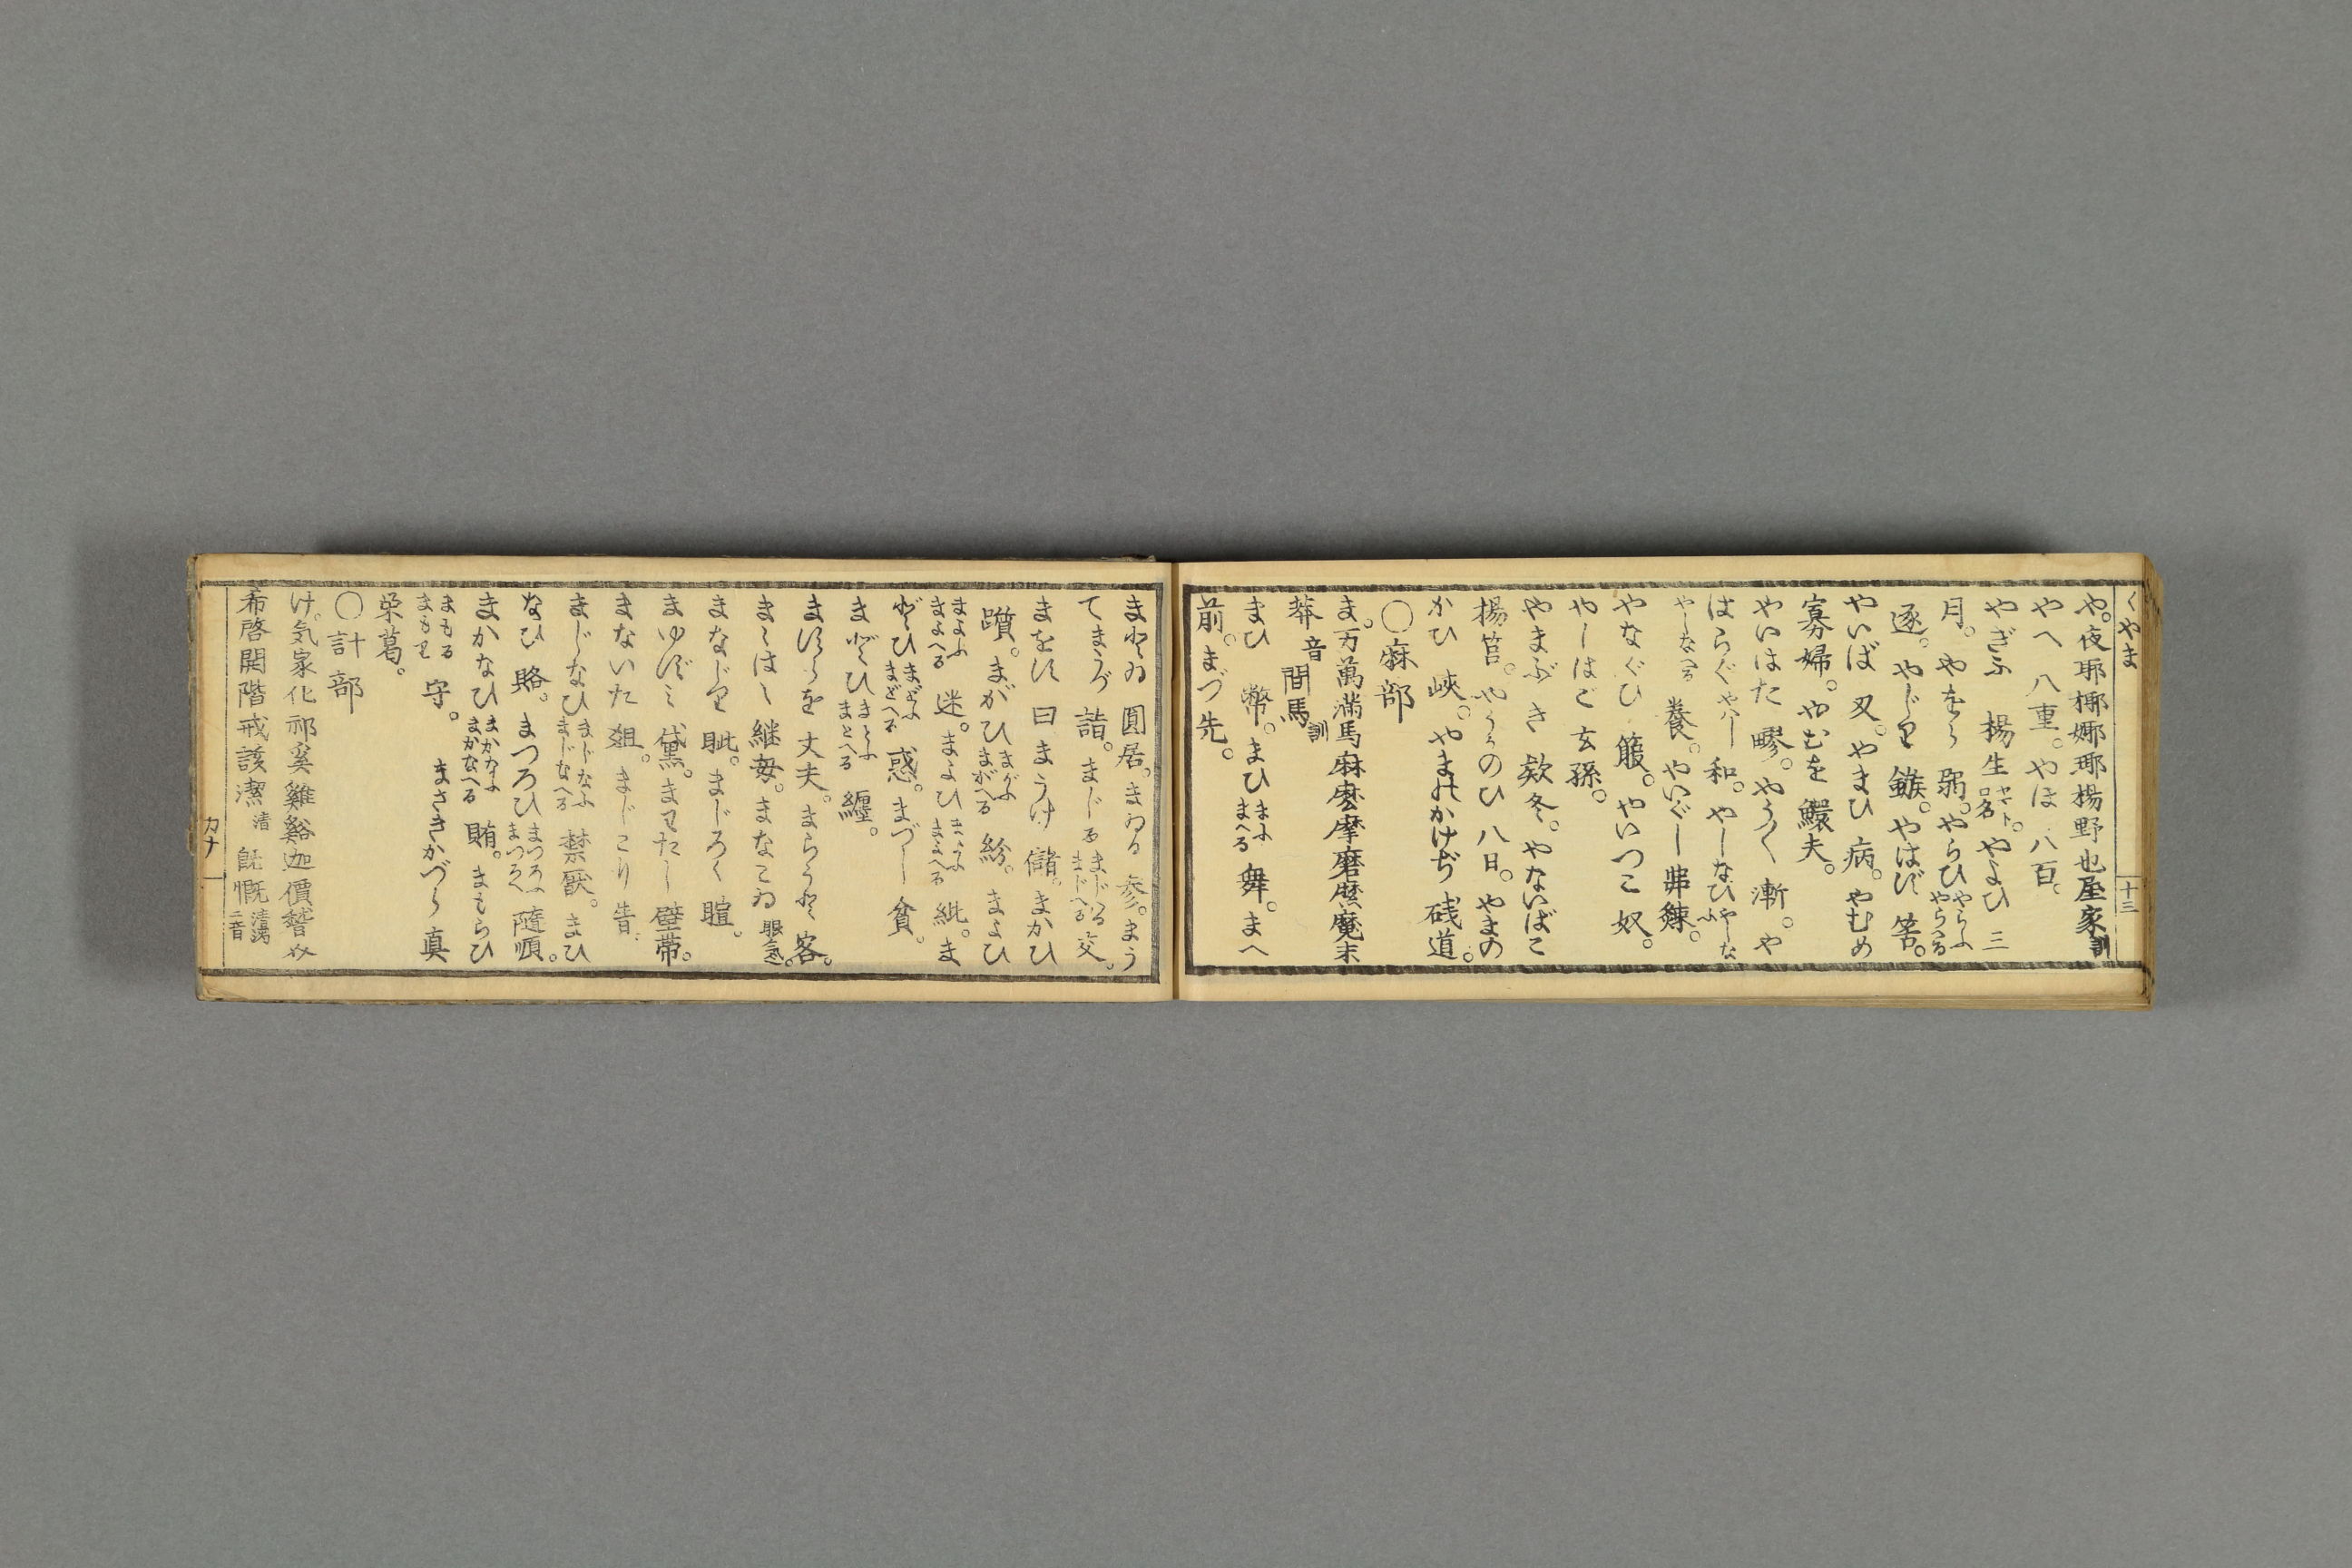 くやま
十三
や。夜耶揶娜琊楊野也屋家訓
やへ 八重。やほ 八百。
やぎふ 楊生ヤマト口名。やよひ 三
月。やをら 弱。やらひやらふやらへる
逐。やじり 鏃。やはず 筈。
やいば 刄。やまひ 病。やむめ
寡婦。やむを 鰥夫。
やいはた 。やうく 漸。や
はらぐやハし 和。やしなひやしなふ
やしなへる 養。やいぐし 串鍊。
やなぐひ 箙。やいつこ 奴。
やしはご 玄孫。
やまぶき 欵冬。やないばこ
楊筥。やうかのひ 八日。やまの
かひ 峽。やまのかけぢ 棧道。
〇麻部
ま。万萬満馬麻麽摩磨魔末
莽音 間馬訓
まひ 幣。まひまふまへる 舞。まへ
前。まづ 先。
まとゐ 圓居。まゐる 参。まう
てまうづ 詣。まじるまじはるまじへる 交。
まをす 曰 まうけ 儲。まかひ
躓。まがひまがふまがへる 紛。まよひ
まよふまよへる 迷。まよひまよふまよへる 紕。ま
どひまどふまどへる 惑。まづし 貧。
まとひまとふまとへる 纏。
ますらを 丈夫。まらうど 客。
まゝはゝ 継母。まなこゐ 眼気。
まなじり 眦。まじろく 瞤。
まゆずミ 黛。まわたし 壁帶。
まないた 俎。まじこり 眚。
まじなひまじなふまじなへる 禁厭。まひ
なひ 賂。まつろひまつろふまつろへ 隨順。
まかなひまかなふまかなへる 賄。まもらひ
まもるまもり 守。 まさきかづら 真
栄葛。
〇計部
け。気家化祁奚雞谿迦價𥡴
希啓開階戒該潔清 既慨清濁二音
カナ 一